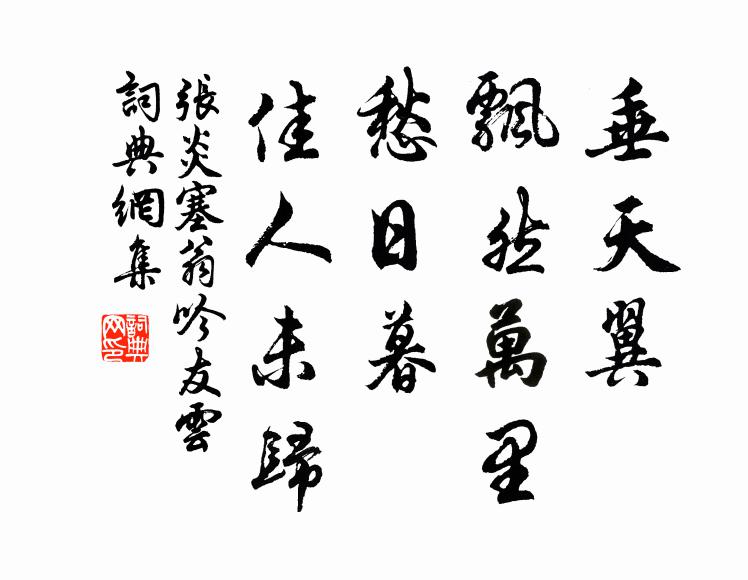 垂天翼
飄然萬里
愁日暮
佳人未歸
張炎塞翁吟友雲
詞典網集
詞典
网印